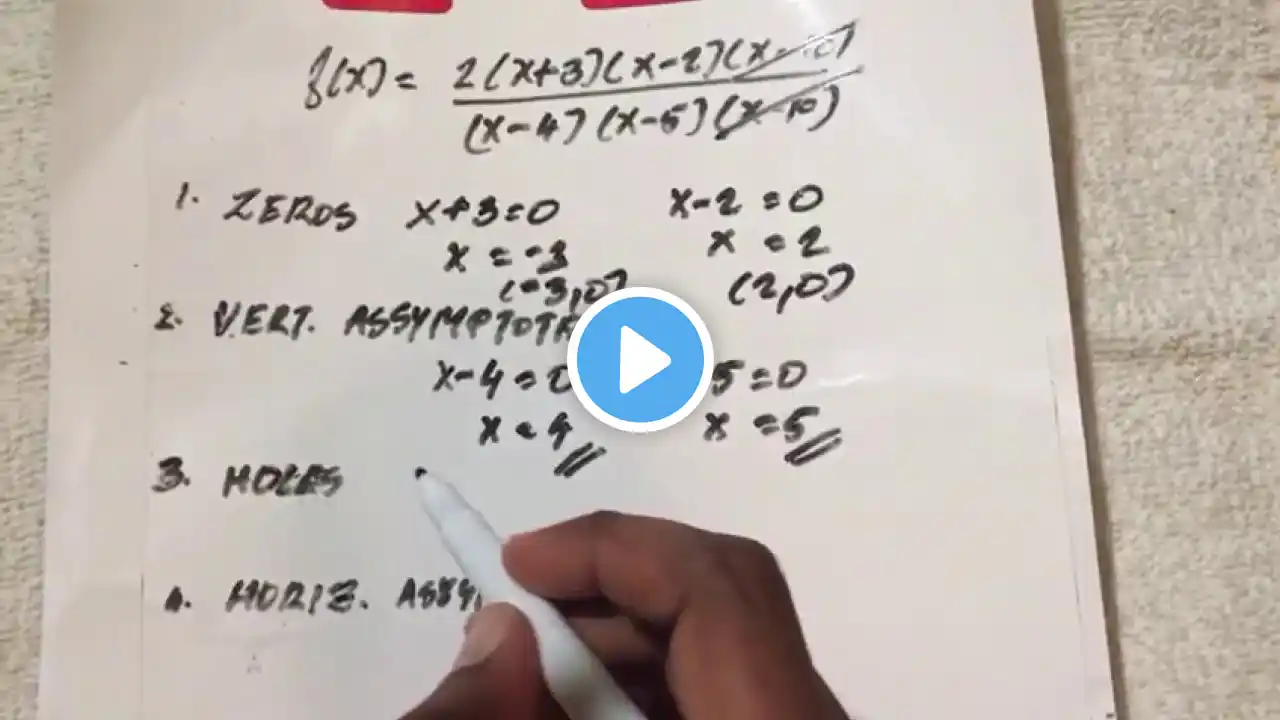 f(x) = 2(x+3)(x-2)(x-10)
(x-4)(x-5)(x-10)
1. ZEROS x+3=0 x-2=0
x = -3 x = 2
(-3,0) (2,0)
2. VERT. ASSYMPTOT
x-4=0 5=0
x = 4 x = 5
3. HOLES
4. HORIZ. ASSY